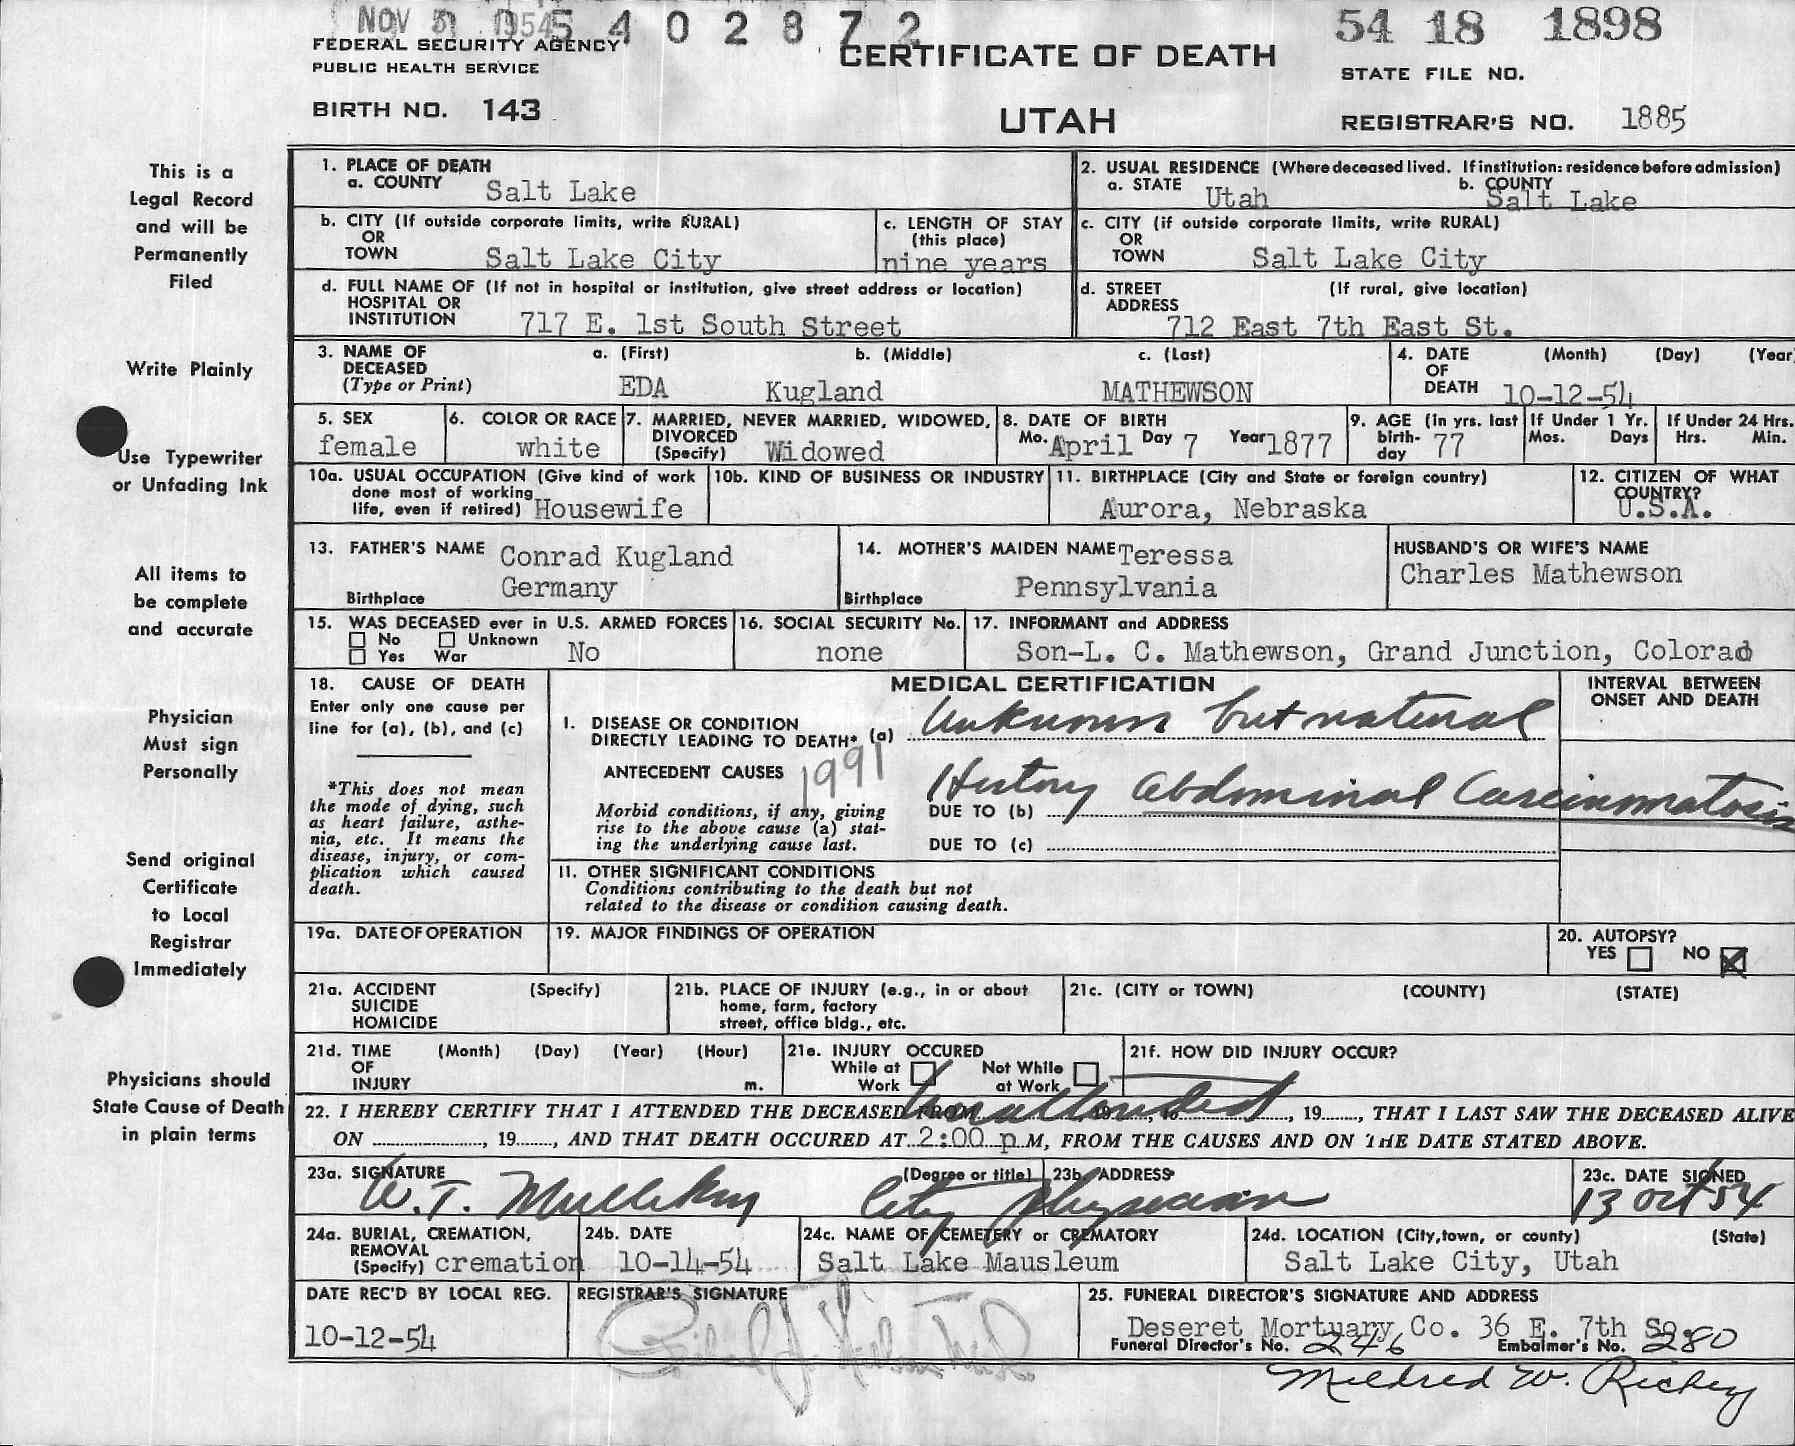 NOV 1954
5402872
54 18 1898
FEDERAL SECURITY AGENCY
PUBLIC HEALTH SERVICE
CERTIFICATE OF DEATH
STATE FILE NO.
BIRTH NO. 143
UTAH
REGISTRAR'S NO. 1885
This is a
Legal Record
and will be
Permanently
Filed
Write Plainly
Use Typewriter
or Unfading Ink
All items to
be complete
and accurate
Physician
Must sign
Personally
Send original
Certificate
to Local
Registrar
Immediately
Physicians should
State Cause of Death
in plain terms
1. PLACE OF DEATH
a. COUNTY Salt Lake
2. USUAL RESIDENCE (Where deceased lived. If institution: residence before admission)
a. STATE Utah b. COUNTY Salt Lake
b. CITY (If outside corporate limits, write RURAL)
OR
TOWN Salt Lake City
c. LENGTH OF STAY
(this place)
nine years
c. CITY (if outside corporate limits, write RURAL)
OR
TOWN Salt Lake City
d. FULL NAME OF (If not in hospital or institution, give street address or location)
HOSPITAL OR
INSTITUTION 717 E. 1st South Street
d. STREET (If rural, give location)
ADDRESS
712 East 7th East St.
3. NAME OF a. (First) b. (Middle) c. (Last)
DECEASED
(Type or Print) EDA Kugland MATHEWSON
4. DATE (Month) (Day) (Year
OF
DEATH 10-12-54
5. SEX
female
6. COLOR OR RACE
white
7. MARRIED, NEVER MARRIED, WIDOWED,
DIVORCED
(Specify) Widowed
8. DATE OF BIRTH
Mo. April Day 7 Year 1877
9. AGE (in yrs. last
birth-
day 77
If Under 1 Yr.
Mos. Days
If Under 24 Hrs.
Hrs. Min.
10a. USUAL OCCUPATION (Give kind of work
done most of working
life, even if retired) Housewife
10b. KIND OF BUSINESS OR INDUSTRY
11. BIRTHPLACE (City and State or foreign country)
Aurora, Nebraska
12. CITIZEN OF WHAT
COUNTRY?
U.S.A.
13. FATHER'S NAME Conrad Kugland
Birthplace Germany
14. MOTHER'S MAIDEN NAME Teressa
Birthplace Pennsylvania
HUSBAND'S OR WIFE'S NAME
Charles Mathewson
15. WAS DECEASED ever in U.S. ARMED FORCES
No Unknown
Yes War No
16. SOCIAL SECURITY No.
none
17. INFORMANT and ADDRESS
Son-L. C. Mathewson, Grand Junction, Colorado
18. CAUSE OF DEATH
Enter only one cause per
line for (a), (b), and (c)
*This does not mean
the mode of dying, such
as heart failure, asthe-
nia, etc. It means the
disease, injury, or com-
plication which caused
death.
MEDICAL CERTIFICATION
INTERVAL BETWEEN
ONSET AND DEATH
I. DISEASE OR CONDITION
DIRECTLY LEADING TO DEATH* (a) Unknown but natural
ANTECEDENT CAUSES 1991
Morbid conditions, if any, giving
rise to the above cause (a) stat-
ing the underlying cause last.
DUE TO (b) History abdominal Carcinomatosis
DUE TO (c)
11. OTHER SIGNIFICANT CONDITIONS
Conditions contributing to the death but not
related to the disease or condition causing death.
19a. DATE OF OPERATION
19. MAJOR FINDINGS OF OPERATION
20. AUTOPSY?
YES NO
21a. ACCIDENT (Specify)
SUICIDE
HOMICIDE
21b. PLACE OF INJURY (e.g., in or about
home, farm, factory
street, office bldg., etc.
21c. (CITY or TOWN) (COUNTY) (STATE)
21d. TIME (Month) (Day) (Year) (Hour)
OF
INJURY m.
21e. INJURY OCCURED
While at Not While
Work at Work
21f. HOW DID INJURY OCCUR?
22. I HEREBY CERTIFY THAT I ATTENDED THE DECEASED FROM unattended 19, to , 19, THAT I LAST SAW THE DECEASED ALIVE
ON , 19, AND THAT DEATH OCCURED AT 2:00 p M, FROM THE CAUSES AND ON THE DATE STATED ABOVE.
23a. SIGNATURE (Degree or title)
W. T. City Physician
23b. ADDRESS
23c. DATE SIGNED
13 Oct 54
24a. BURIAL, CREMATION,
REMOVAL
(Specify) cremation
24b. DATE
10-14-54
24c. NAME OF CEMETERY or CREMATORY
Salt Lake Mausleum
24d. LOCATION (City, town, or county) (State)
Salt Lake City, Utah
DATE REC'D BY LOCAL REG.
10-12-54
REGISTRAR'S SIGNATURE
25. FUNERAL DIRECTOR'S SIGNATURE AND ADDRESS
Deseret Mortuary Co. 36 E. 7th So.
Funeral Director's No. 246 Embalmer's No. 280
Mildred W. Richey